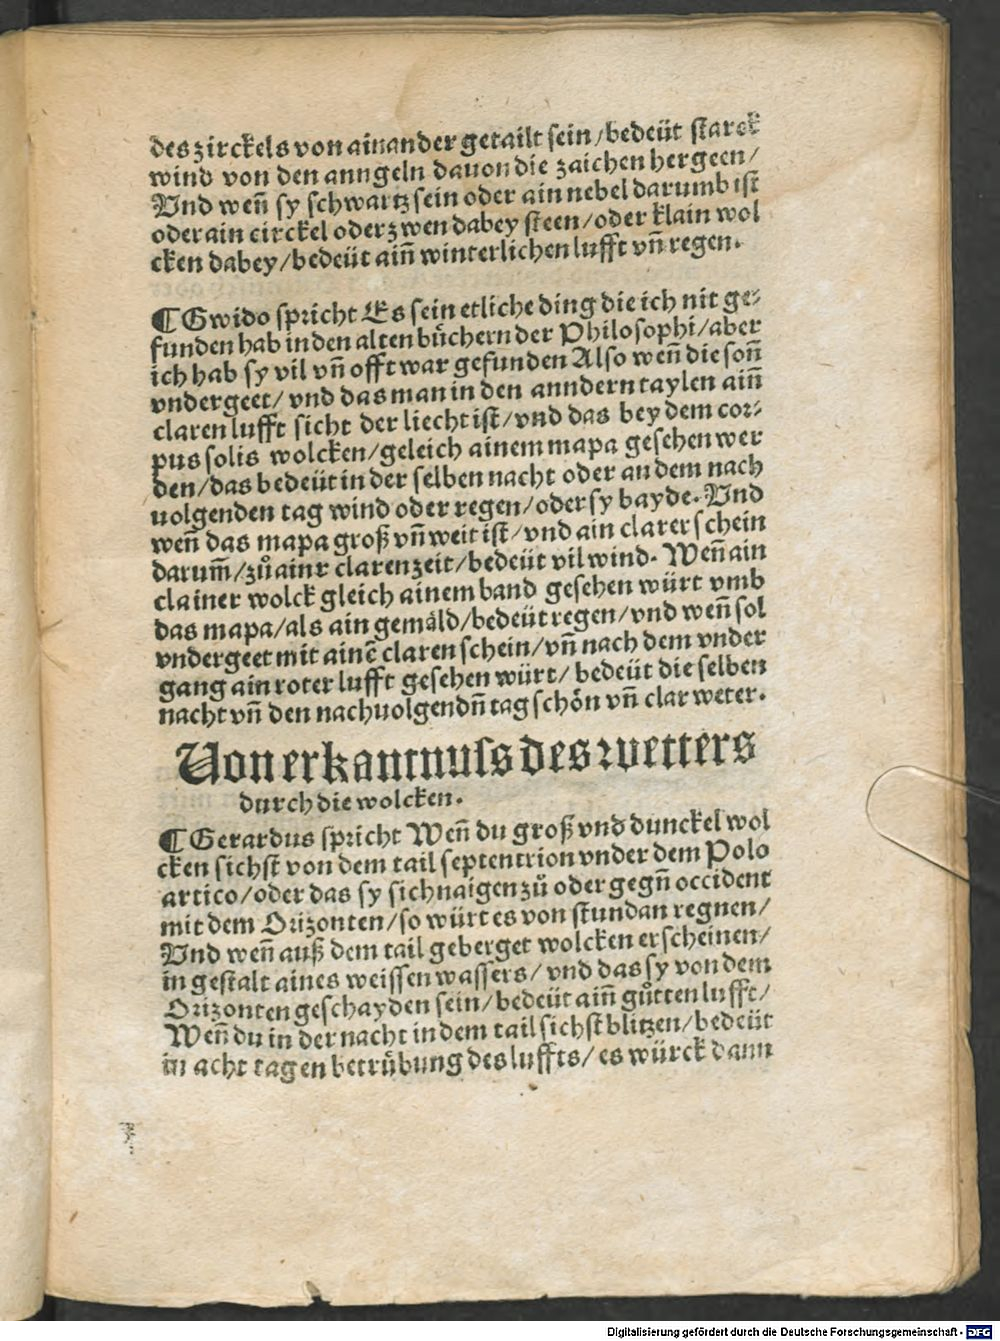 des zirckels von ainander getailt sein/bedeüt starck
wind von den anngeln dauon die zaichen hergeen/
Vnd weñ sy schwartz sein oder ain nebel darumb ist
oder ain circkel oder zwen dabey steen/oder klain wol
cken dabey/bedeüt aiñ winterlichen lufft vñ regen.
¶ Gwido spricht Es sein etliche ding die ich nit ge⸗
funden hab in den alten bůchern der Philosophi/aber
ich hab sy vil vñ offt war gefunden Also weñ die soñ
vndergeet/ vnd das man in den anndern taylen aiñ
claren lufft sicht der liecht ist/vnd das bey dem cor⸗
pus solis wolcken/geleich ainem mapa gesehen wer
den/das bedeüt in der selben nacht oder an dem nach
uolgenden tag wind oder regen/oder sy bayde. Vnd
weñ das mapa groß vñ weit ist/vnd ain clarer schein
darum̃/zů ainr claren zeit/bedeüt vil wind. Weñ ain
clainer wolck gleich ainem band gesehen würt vmb
das mapa/als ain gemåld/bedeüt regen/vnd weñ sol
vndergeet mit ainẽ claren schein/vñ nach dem vnder
gang ain roter lufft gesehen würt/ bedeüt die selben
nacht vñ den nachuolgendñ tag schön vñ clar weter.
Von erkantnuss des wetters
durch die wolcken.
¶ Gerardus spricht Weñ du groß vnd dunckel wol
cken sichst von dem tail septentrion vnder dem Polo
artico/oder das sy sich naigen zů oder gegñ occident
mit dem Orizonten/so würt es von stund an regnen/
Vnd weñ auß dem tail geberget wolcken erscheinen/
in gestalt aines weissen wassers/ vnd das sy von dem
Orizonten geschayden sein/bedeüt aiñ gůtten lufft/
Weñ du in der nacht in dem tail sichst blitzen/bedeüt
in acht tagen betrůbung des luffts/es würck dann
Digitalisierung gefördert durch die Deutsche Forschungsgemeinschaft - DFG